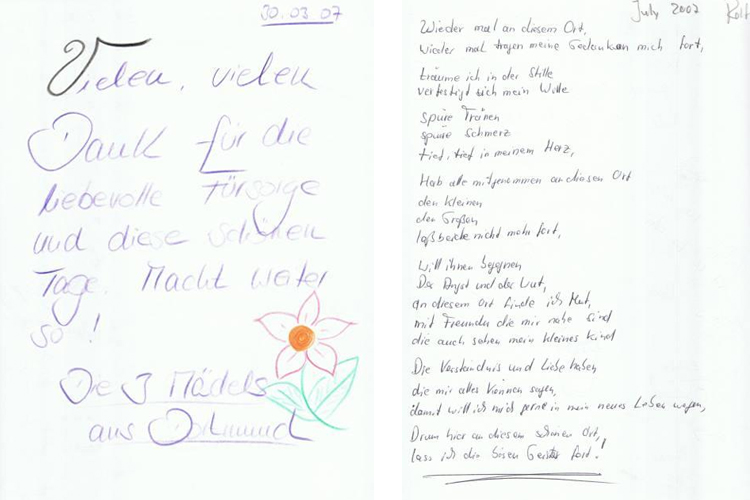 30.03.07
Vielen, vielen
Dank für die
liebevolle Fürsorge
und diese schönen
Tage. Macht weiter
so!
Die 3 Mädels
aus Dortmund
July 2007
Wieder mal an diesem Ort,
wieder mal tragen meine Gedanken mich fort,
träume ich in der Stille
verfestigt sich mein Wille
Spüre Tränen
spüre Schmerz
tief, tief in meinem Herz,
Hab alle mitgenommen an diesen Ort
den kleinen
den Großen
laß beide nicht mehr fort,
Will ihnen begegnen
Der Angst und der Wut,
an diesem Ort finde ich Mut,
mit Freunden die mir nahe sind
die auch sehen mein kleines Kind
Die Verständnis und Liebe haben
die mir alles können sagen,
damit will ich mich gerne in mein neues Leben wagen,
Drum hier an diesem schönen Ort,
lass ich die bösen Geister fort!